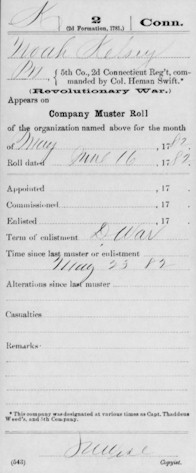 K 2 Conn.
(2d Formation, 1781.)
Noah Kelsey
Pvt, 5th Co., 2d Connecticut Reg't, com-
manded by Col. Heman Swift.*
(Revolutionary War.)
Appears on
Company Muster Roll
of the organization named above for the month
of May, 1782.
Roll dated June 16, 1782.
Appointed , 17 .
Commissioned , 17 .
Enlisted , 17 .
Term of enlistment D. War
Time since last muster or enlistment
May 23 82
Alterations since last muster
Casualties
Remarks:
* This company was designated at various times as Capt. Thaddeus
Weed's, and 7th Company.
(543) Copyist.